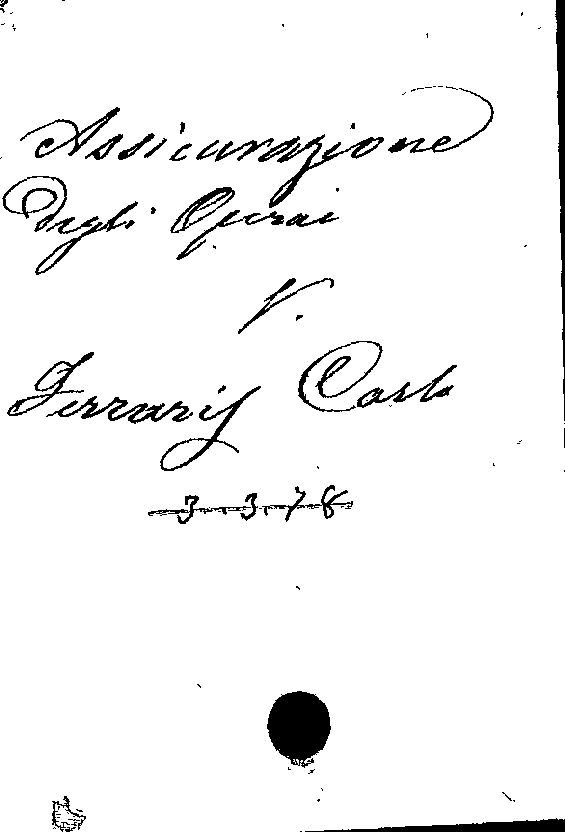 Assicurazione
degli Operai
V.
Ferraris Carlo
3.3.78